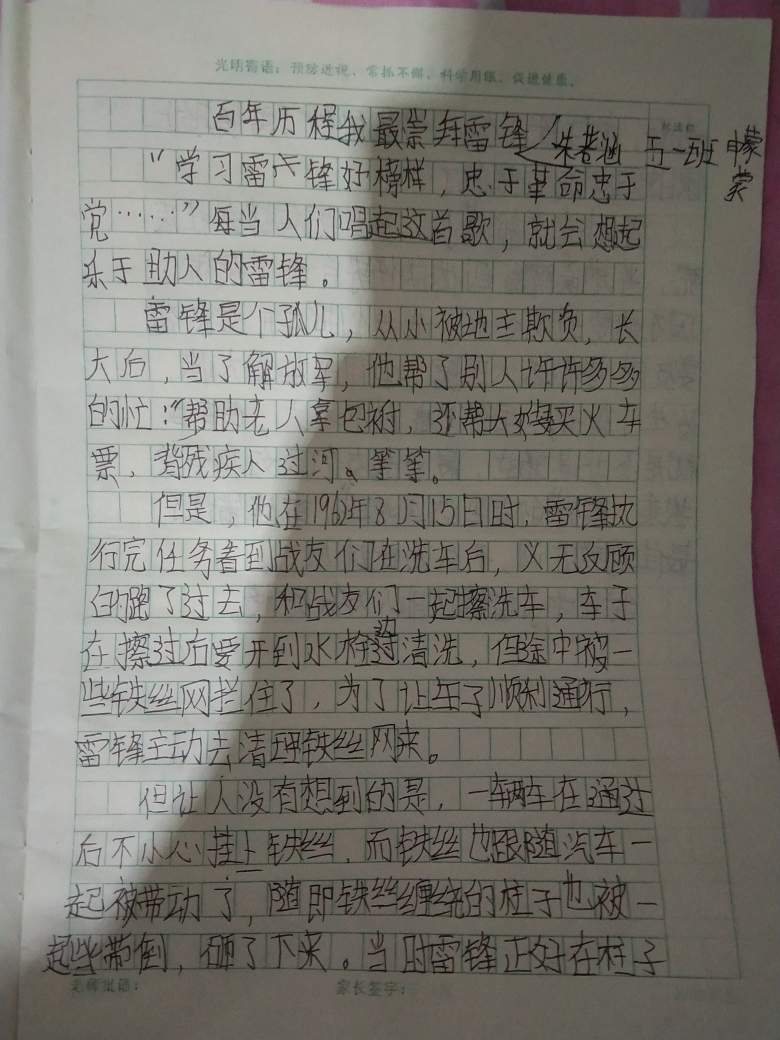 光明寄语：预防近视、常抓不懈、科学用眼、促进健康。
百年历程我最崇拜雷锋 朱若涵 五一班
“学习雷锋好榜样，忠于革命忠于
党……”每当人们唱起这首歌，就会想起
乐于助人的雷锋。
雷锋是个孤儿，从小被地主欺负，长
大后，当了解放军，他帮了别人许许多多
的忙：“帮助老人拿包袱，还帮大嫂买火车
票，背残疾人过河、等等。
但是，他在1962年8月15日时，雷锋执
行完任务看到战友们在洗车后，义无反顾
的跑了过去，和战友们一起擦洗车，车子
在擦过后要开到水栓边过清洗，但途中被一
些铁丝网拦住了，为了让车子顺利通行，
雷锋主动去清理铁丝网来。
但让人没有想到的是，一辆车在通过
后不小心挂上铁丝，而铁丝也跟随汽车一
起被带动了，随即铁丝缠绕的柱子也被一
起带倒，砸了下来。当时雷锋正好在柱子
老师批语： 家长签字：